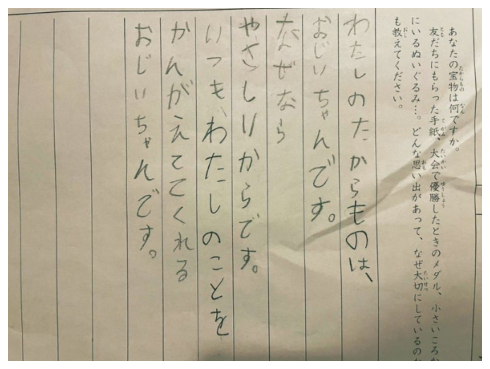 あなたの宝物は何ですか。
友だちにもらった手紙、大会で優勝したときのメダル、小さいころ
にいるぬいぐるみ…。どんな思い出があって、なぜ大切にしているのか
も教えてください。
わたしのたからものは、
おじいちゃんです。
なぜなら
やさしいからです。
いつも、わたしのことを
かんがえてくれる
おじいちゃんです。